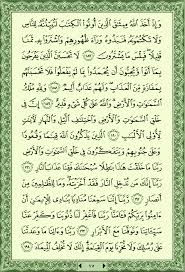 وَإِذْ أَخَذَ ٱللَّهُ مِيثَٰقَ ٱلَّذِينَ أُوتُوا۟ ٱلْكِتَٰبَ لَتُبَيِّنُنَّهُۥ لِلنَّاسِ
وَلَا تَكْتُمُونَهُۥ فَنَبَذُوهُ وَرَآءَ ظُهُورِهِمْ وَٱشْتَرَوْا۟ بِهِۦ ثَمَنًا
قَلِيلًا فَبِئْسَ مَا يَشْتَرُونَ ١٨٧ لَا تَحْسَبَنَّ ٱلَّذِينَ يَفْرَحُونَ
بِمَآ أَتَوا۟ وَّيُحِبُّونَ أَن يُحْمَدُوا۟ بِمَا لَمْ يَفْعَلُوا۟ فَلَا تَحْسَبَنَّهُم
بِمَفَازَةٍ مِّنَ ٱلْعَذَابِ وَلَهُمْ عَذَابٌ أَلِيمٌ ١٨٨ وَلِلَّهِ مُلْكُ
ٱلسَّمَٰوَٰتِ وَٱلْأَرْضِ وَٱللَّهُ عَلَىٰ كُلِّ شَىْءٍ قَدِيرٌ ١٨٩ إِنَّ فِى خَلْقِ
ٱلسَّمَٰوَٰتِ وَٱلْأَرْضِ وَٱخْتِلَٰفِ ٱلَّيْلِ وَٱلنَّهَارِ لَءَايَٰتٍ
لِّأُو۟لِى ٱلْأَلْبَٰبِ ١٩٠ ٱلَّذِينَ يَذْكُرُونَ ٱللَّهَ قِيَٰمًا وَقُعُودًا
وَعَلَىٰ جُنُوبِهِمْ وَيَتَفَكَّرُونَ فِى خَلْقِ ٱلسَّمَٰوَٰتِ وَٱلْأَرْضِ
رَبَّنَا مَا خَلَقْتَ هَٰذَا بَٰطِلًا سُبْحَٰنَكَ فَقِنَا عَذَابَ ٱلنَّارِ ١٩١
رَبَّنَآ إِنَّكَ مَن تُدْخِلِ ٱلنَّارَ فَقَدْ أَخْزَيْتَهُۥ وَمَا لِلظَّٰلِمِينَ مِنْ
أَنصَارٍ ١٩٢ رَّبَّنَآ إِنَّنَا سَمِعْنَا مُنَادِيًا يُنَادِى لِلْإِيمَٰنِ أَنْ
ءَامِنُوا۟ بِرَبِّكُمْ فَـَٔامَنَّا رَبَّنَا فَٱغْفِرْ لَنَا ذُنُوبَنَا وَكَفِّرْ عَنَّا
سَيِّـَٔاتِنَا وَتَوَفَّنَا مَعَ ٱلْأَبْرَارِ ١٩٣ رَبَّنَا وَءَاتِنَا مَا وَعَدتَّنَا
عَلَىٰ رُسُلِكَ وَلَا تُخْزِنَا يَوْمَ ٱلْقِيَٰمَةِ إِنَّكَ لَا تُخْلِفُ ٱلْمِيعَادَ ١٩٤